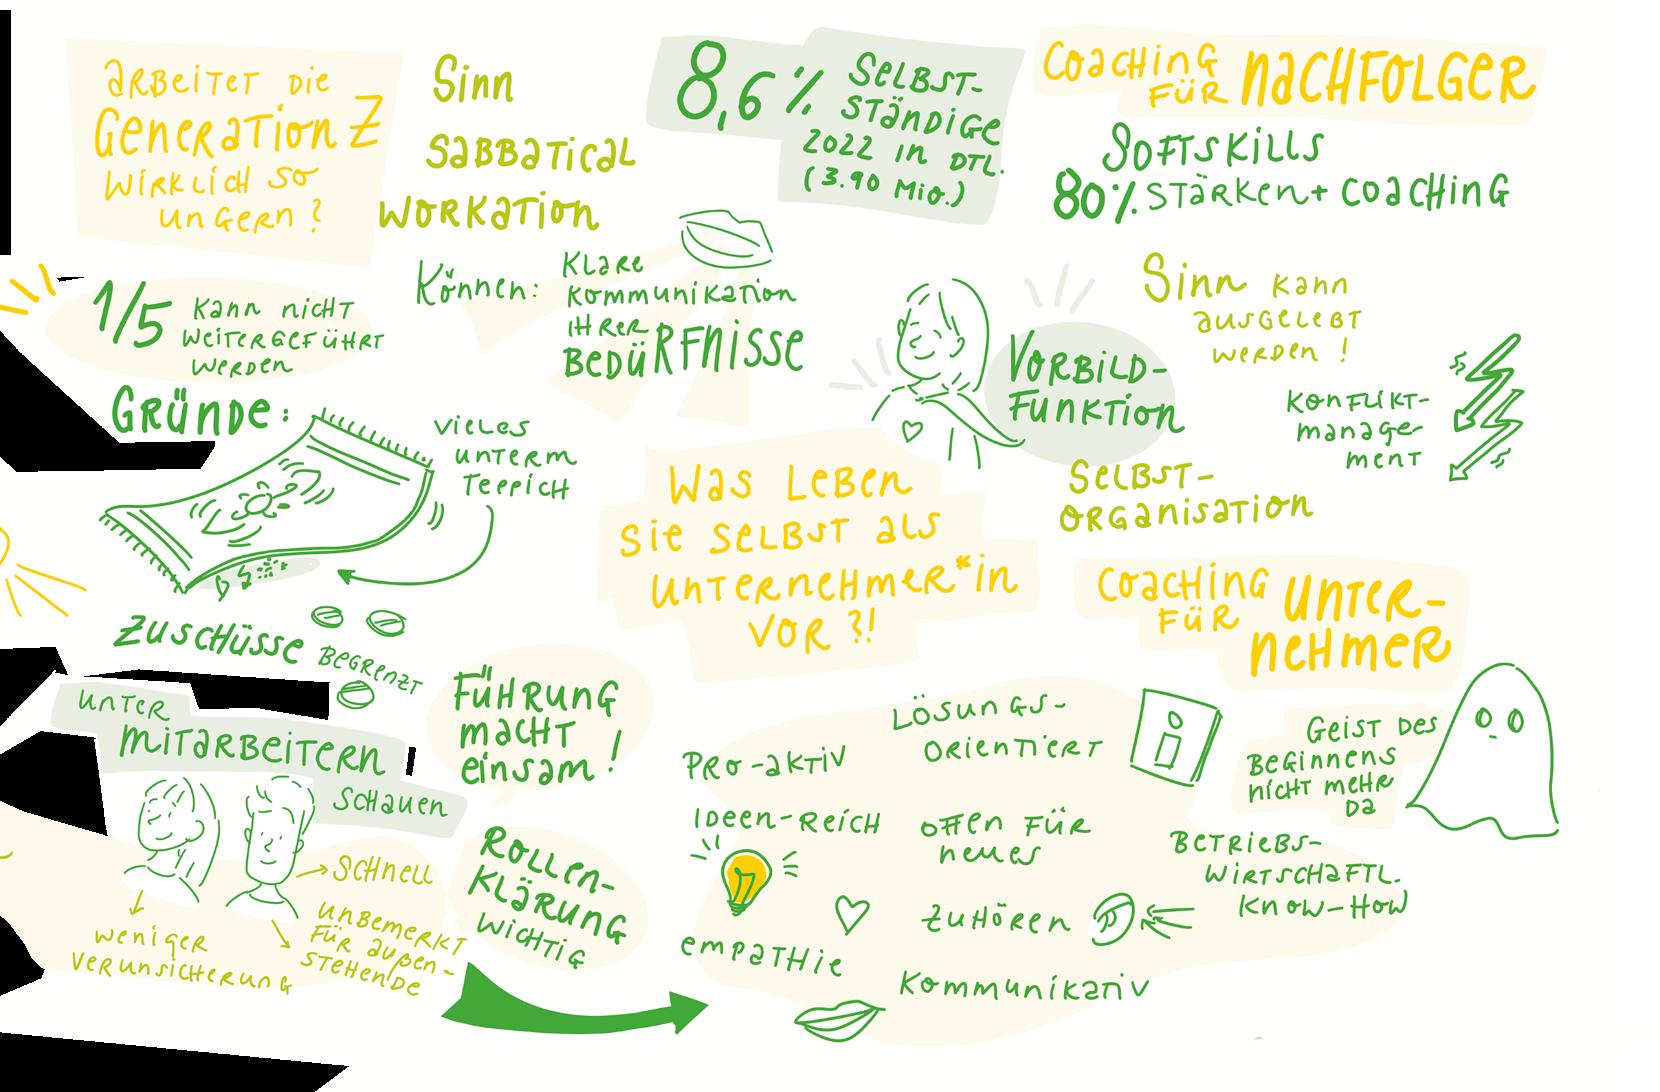 arbeitet die
Generation Z
wirklich so
ungern?
Sinn
Sabbatical
Workation
8,6%
Selbst-
ständige
2022 in Dtl.
(3.90 Mio.)
Coaching
für Nachfolger
Softskills
80% Stärken + Coaching
1/5 kann nicht
weitergeführt
werden
Können: Klare
Kommunikation
ihrer
Bedürfnisse
Sinn kann
ausgelebt
werden!
Vorbild-
funktion
Konflikt-
manage-
ment
Selbst-
organisation
Gründe:
vieles
unterm
Teppich
Was leben
Sie selbst als
Unternehmer*in
vor?!
Zuschüsse
begrenzt
Coaching
für Unter-
nehmer
unter
Mitarbeitern
schauen
schnell
weniger
Verunsicherung
unbemerkt
für außen-
stehende
Führung
macht
einsam!
Rollen-
klärung
wichtig
Lösungs-
orientiert
Pro-aktiv
Ideen-reich
offen für
neues
Zuhören
Empathie
Kommunikativ
Geist des
Beginnens
nicht mehr
da
Betriebs-
wirtschaftl.
Know-How